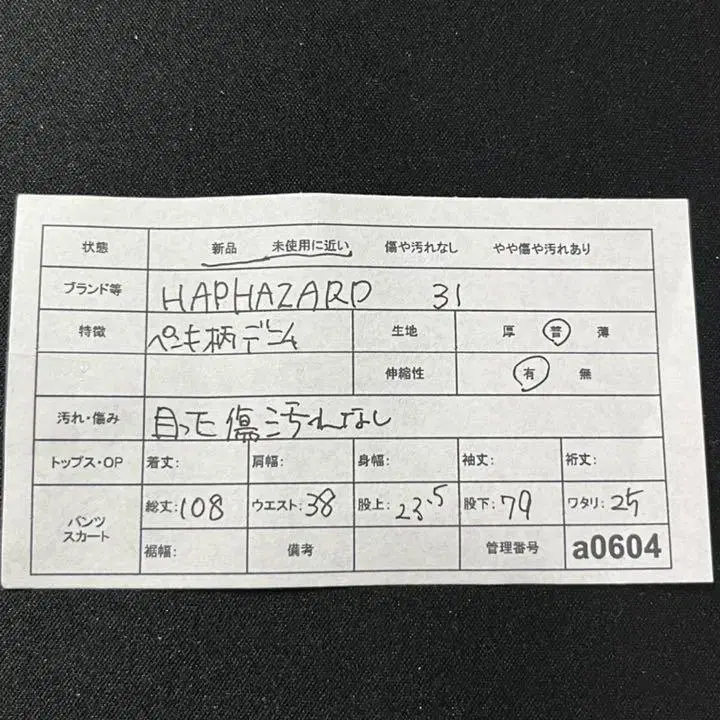 状態 新品 未使用に近い 傷や汚れなし やや傷や汚れあり
ブランド等 HAPHAZARD 31
特徴 ペンキ柄デニム 生地 厚 普 薄
伸縮性 有 無
汚れ・傷み 目立った傷汚れなし
トップス・OP 着丈: 肩幅: 身幅: 袖丈: 裄丈:
パンツ スカート 総丈:108 ウエスト:38 股上:23.5 股下:79 ワタリ:25
裾幅: 備考 管理番号 a0604